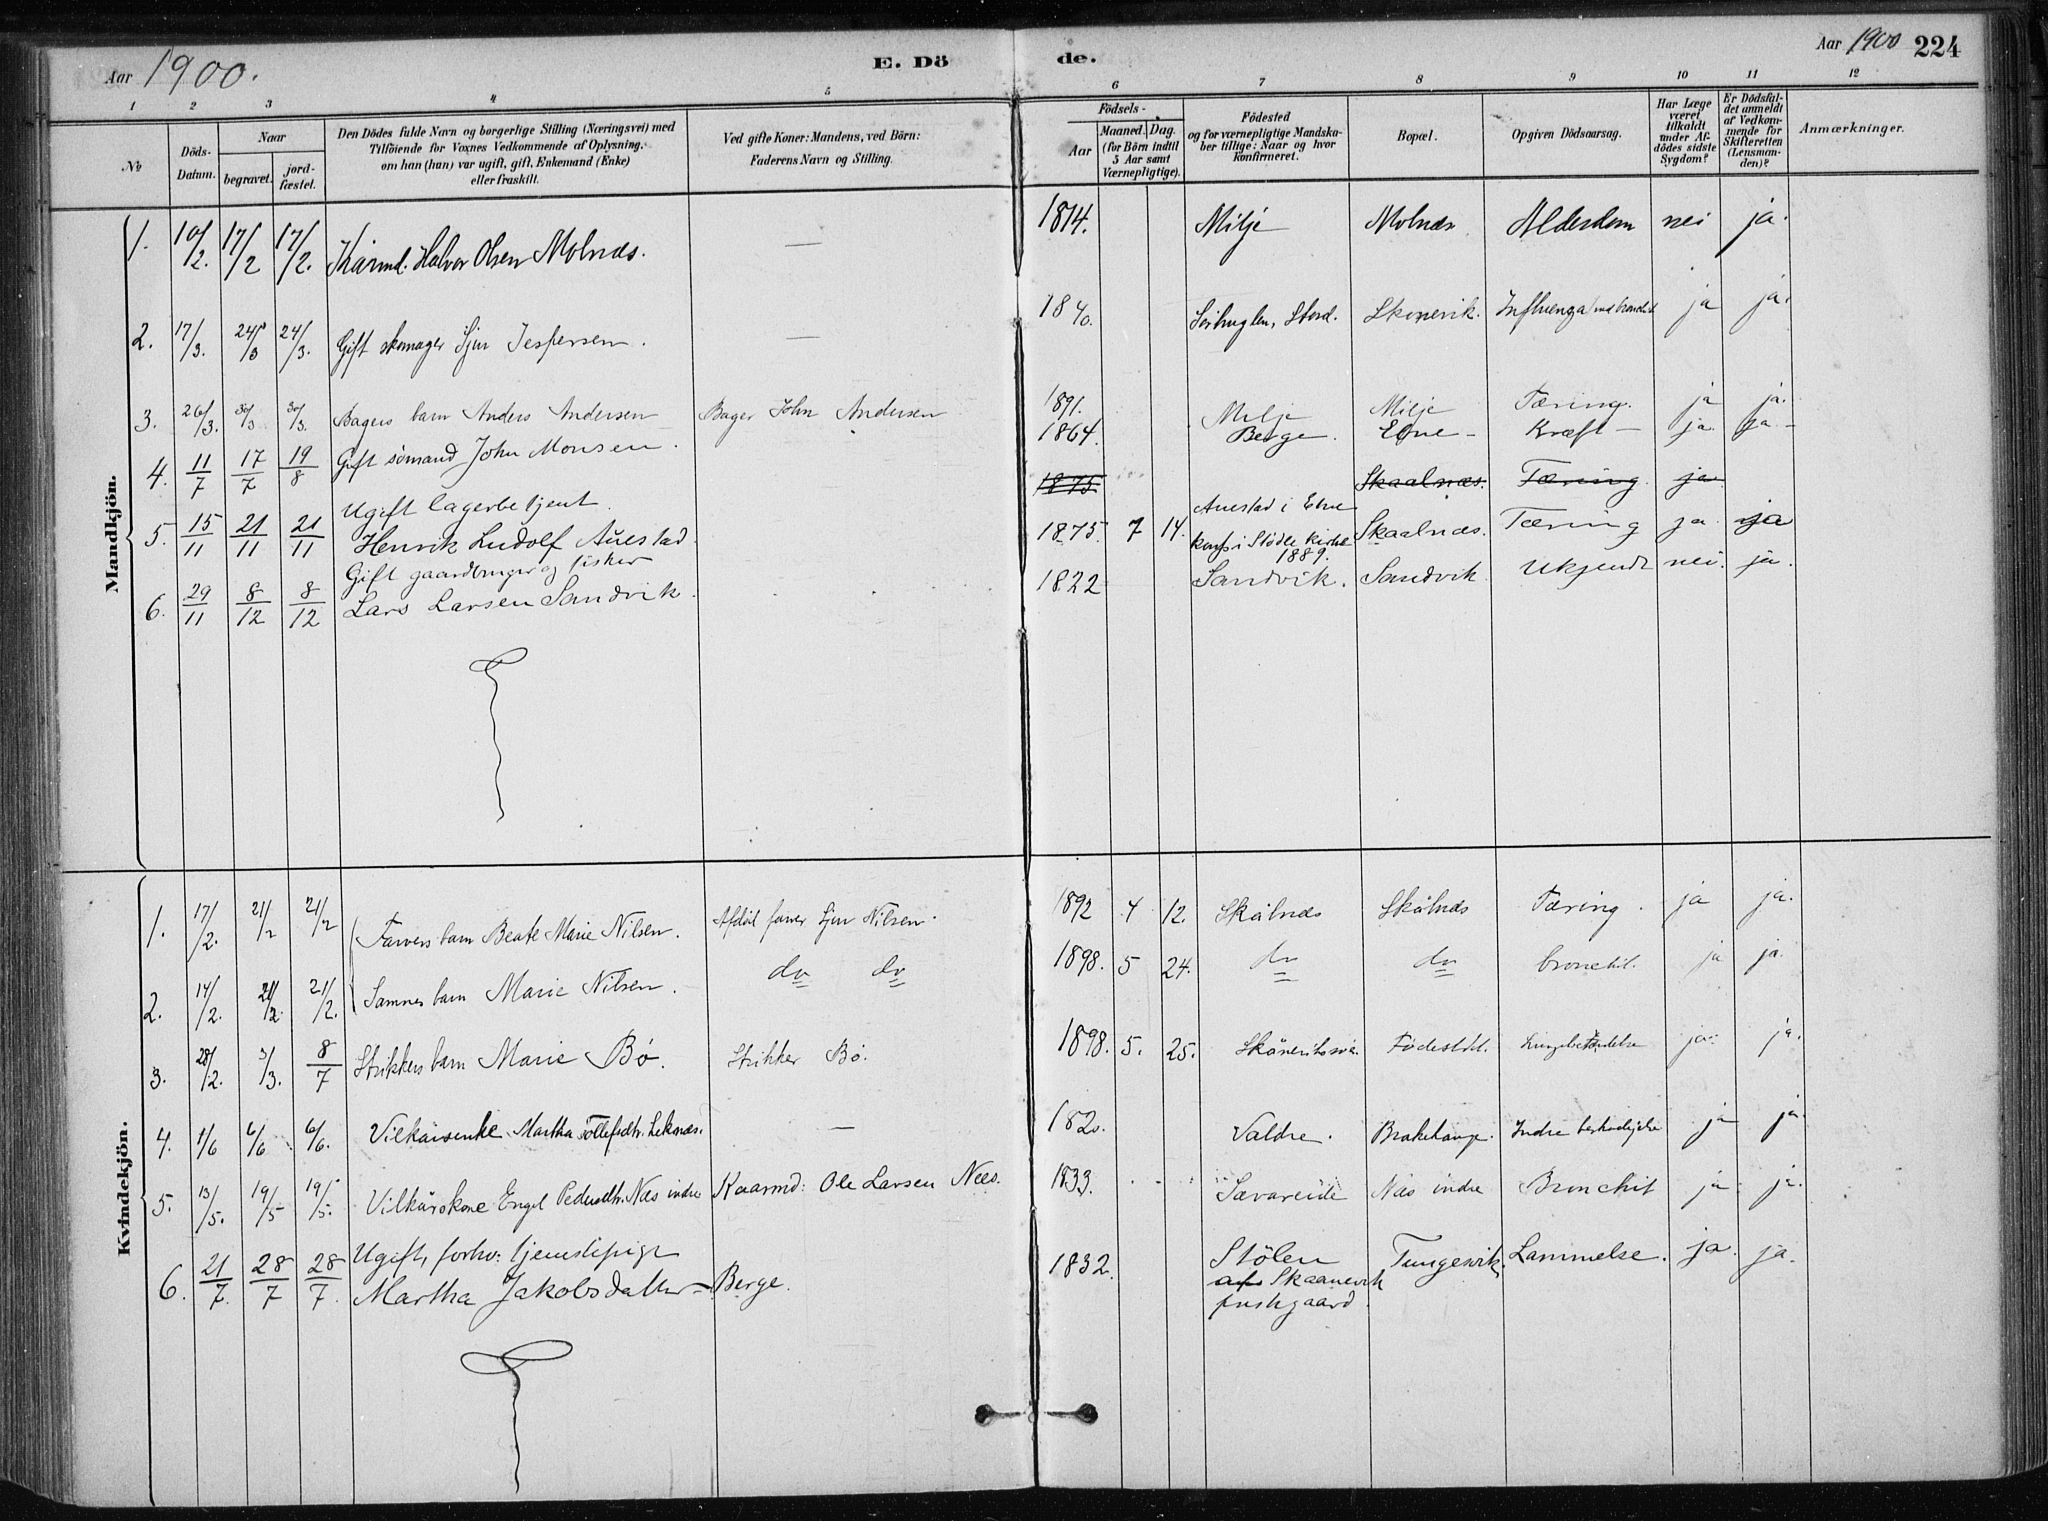 Aar 1900.
E. Dö
de.
Aar 1900 224
1 2 3 4 5 6 7 8 9 10 11 12
No
Döds-Datum.
Naar
begravet.
jord-fæstet.
Den Dödes fulde Navn og borgerlige Stilling (Næringsvei) med
Tilföiende for Voxnes Vedkommende af Oplysning,
om han (hun) var ugift, gift, Enkemand (Enke)
eller fraskilt.
Ved gifte Koner: Mandens, ved Börn:
Faderens Navn og Stilling.
Födsels-
Aar
Maaned. Dag.
(for Börn indtil
5 Aar samt
Værnepligtige).
Födested
og for værnepligtige Mandska-
ber tillige: Naar og hvor
konfirmeret.
Bopæl.
Opgiven Dödsaarsag.
Har Læge
været
tilkaldt
under Af-
dödes sidste
Sygdom?
Er Dödsfal-
det anmeldt
af Vedkom-
mende for
Skifteretten
(Lensman-
den)?
Anmærkninger.
Mandkjön.
1. 10/2. 17/2 17/2. Kårmd. Halvor Olsen Molnæs. — 1814. Milje Molnæs Alderdom nei ja.
2. 17/3. 24/3 24/3. Gift skomager Sjur Jespersen. — 1840. Stord. Skonevik. Influenza ja ja.
3. 26/3. 30/3 30/3. Bagers barn Anders Andersen Bager John Andersen 1891. Milje Milje Tæring. ja ja.
4. 11/7 17/7 19/8 Gift sömand John Monsen. 1864. Berge. Etne Kræft ja. ja.
1875 Skaalnæs. Tæring. ja
5. 15/11 21/11 21/11 Ugift lagerbetjent
Henrik Ludolf Auestad. 1875. 7 14. Auestad i Etne
konf. i Stödle kirke
1889. Skaalnæs. Tæring ja ja
6. 29/11 8/12 8/12 Gift gaardbruger og fisker
Lars Larsen Sandvik. 1822 Sandvik. Sandvik. Ukjendt nei. ja.
Kvindekjön.
1. 17/2. 21/2 21/2 Farvers barn Beate Marie Nilsen. Afdöd farver Sjur Nilsen. 1892 4 12. Skålnæs Skålnæs Tæring. ja ja.
2. 14/2. 21/2. 21/2. Samnes barn Marie Nilsen. do do 1898. 5 24. do do bronchit. ja ja.
3. 28/2. 3/3. 8/7 Strikkers barn Marie Bø. Strikker Bø. 1898. 5. 25. Födestdt. ja. ja.
4. 1/6 6/6 6/6. Vilkårsenke Martha Tollefsdtr. Leknæs. — 1820. Valdre. Indre ja ja.
5. 13/5. 19/5 19/5. Vilkårskone Engel Pedersdtr. Næs indre Kaarmd: Ole Larsen Næs. 1833. Sævareide Næs indre Bronchit ja ja.
6. 21/7. 28/7 28/7. Ugift, forhv: tjenestepige
Martha Jakobsdatter — Berge. 1832. Stölen
Skaanevik
prestgaard. Tungesvik. Lammelse. ja. ja.